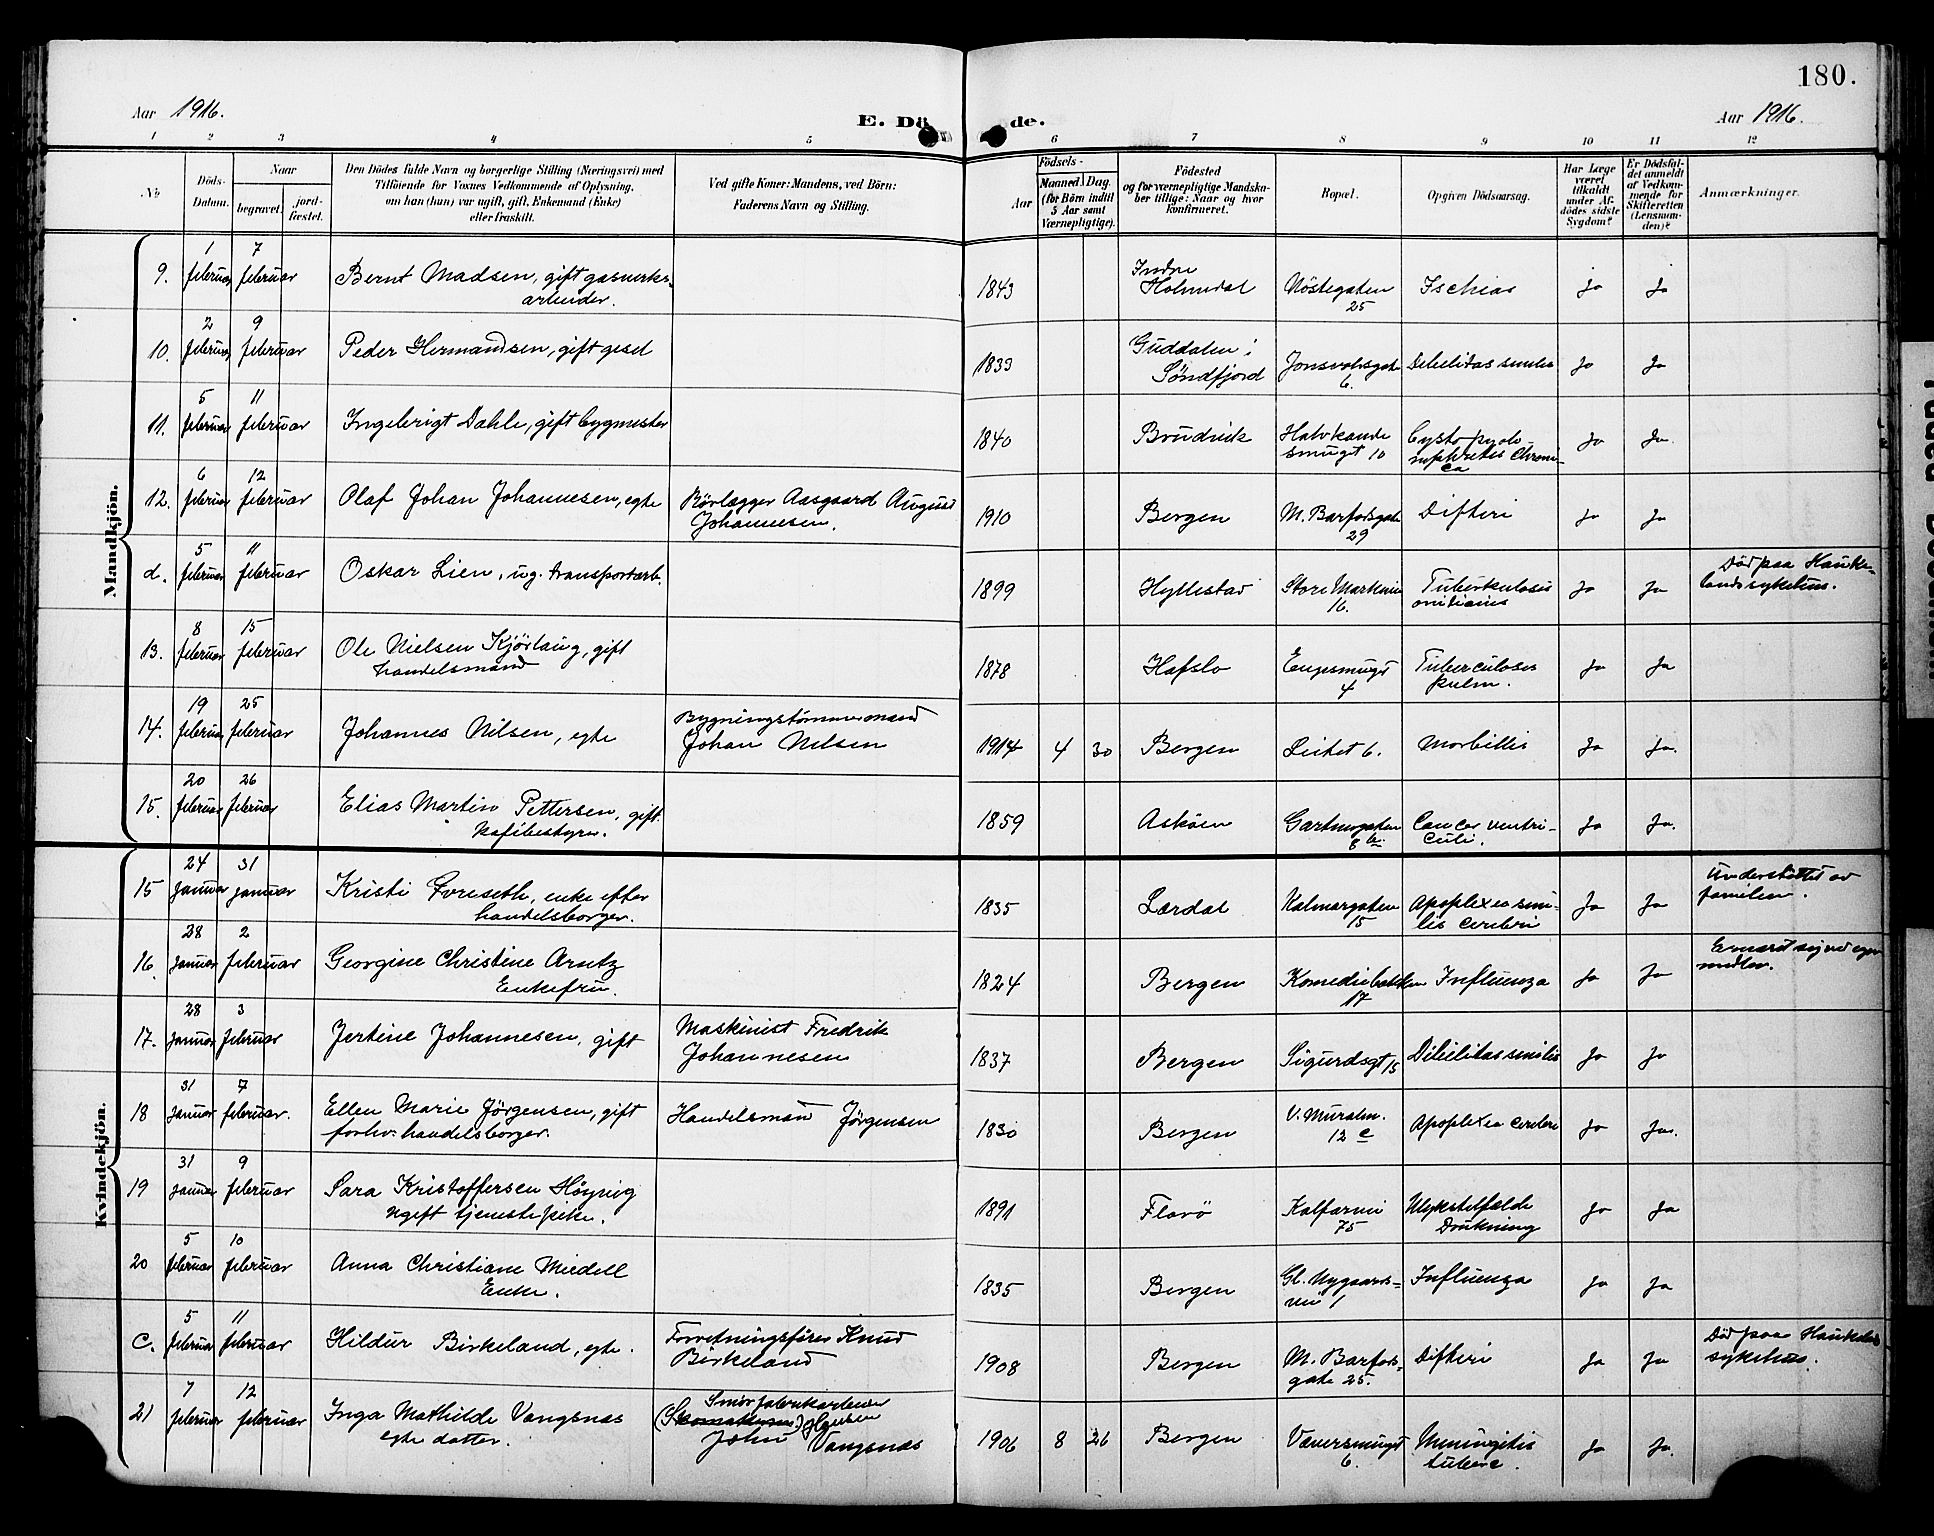 180.
Aar 1916.
E. Döde.
Aar 1916.
1 2 3 4 5 6 7 8 9 10 11 12
No
Döds-Datum.
Naar
begravet.
jord-fæstet.
Den Dödes fulde Navn og borgerlige Stilling (Næringsvei) med
Tilföiende for Voxnes Vedkommende af Oplysning,
om han (hun) var ugift, gift, Enkemand (Enke)
eller fraskilt.
Ved gifte Koner: Mandens, ved Börn:
Faderens Navn og Stilling.
Födsels-
Aar
Maaned. Dag.
(for Börn indtil
5 Aar samt
Værnepligtige).
Födested
og for værnepligtige Mandska-
ber tillige: Naar og hvor
konfirmeret.
Bopæl.
Opgiven Dödsaarsag.
Har Læge
været
tilkaldt
under Af-
dödes sidste
Sygdom?
Er Dödsfal-
det anmeldt
af Vedkom-
mende for
Skifteretten
(Lensman-
den)?
Anmærkninger.
Mandkjön.
9. 1 februar 7 februar Bernt Madsen, gift gasverks-
arbeider. 1843 Indre
Holmedal Nöstegaten
25 Ischias ja ja
10. 2 februar 9 februar Peder Hermandsen, gift gesel 1833 Guddalen i
Söndfjord Jonsvolsgate
6. Debilitas senilis Ja Ja
11. 5 februar 11 februar Ingebrigt Dahle, gift bygmester 1840 Brudvik Halvkande
smuget 10 Cysto pyelo-
nephretis chroni-
ca Ja Ja
12. 6 februar 12 februar Olaf Johan Johannesen, egte Rörlægger Aasgaard August
Johannesen. 1910 Bergen M. Barfodsgate
29 Difteri Ja Ja
d. 5 februar 11 februar Oskar Lien, ug. transportarb. 1899 Hyllestad Store Markevei
16. Tuberkulosis
Ja Ja Död paa Hauke-
landssykehus.
13. 8 februar 15 februar Ole Nielsen Kjörlaug, gift
handelsmand 1878 Hafslo Engesmuget
4 Tuberculosis
pulm. Ja Ja
14. 19 februar 25 februar Johannes Nilsen, egte Bygningstömmermand
Johan Nilsen 1914 4 30 Bergen Leitet 6. Morbillis Ja Ja.
15. 20 februar 26 februar Elias Martin Pettersen, gift
kafébestyrer. 1859 Asköen Gartnergaten
8 Cancer ventri-
culi. Ja Ja.
Kvindekjön.
15 24 januar 31 januar Kristi Foreseth, enke efter
handelsborger. 1835 Lærdal Kalmargaten
15 Apoplexia seni-
lis cerebri Ja Ja Understöttet av
familien.
16. 28 januar 2 februar Georgine Christine Arntz
Enkefru. 1824 Bergen Komediebakken
17 Influenza Ja Ja Ernæret sig ved egne
midler.
17. 28 januar 3 februar Jertine Johannesen, gift Maskinist Fredrik
Johannesen 1837 Bergen Sigurdsgt 15 Debilitas senilis Ja Ja
18 31 januar 7 februar. Ellen Marie Jörgensen, gift
forhv. handelsborger. Handelsmand Jörgensen 1830 Bergen V. Muralm.
12 c Apoplexia cerebri Ja Ja.
19 31 januar 9 februar Sara Kristoffersen Höyvig
ugift tjenestepike. 1891 Florö Kalfarvei
75 Ulykkestilfælde
Drukning Ja Ja
20 5 februar 10 februar Anna Christiane Miedell
Enke. 1835 Bergen Gl. Nygaards-
vei 1 Influenza Ja Ja
C. 5 februar 11 februar Hildur Birkeland, egte. Forretningsförer Knud
Birkeland 1908 Bergen M. Barfods-
gate 25. Difteri Ja Ja Död paa Haukelands
sykehus.
21 7 februar 12 februar Inga Mathilde Vangsnæs
egte datter. Smörfabrikarbeider
John Hansen
Vangsnæs 1906 8 26 Bergen Væversmuget
6. Meningitis
tuberc. Ja Ja.